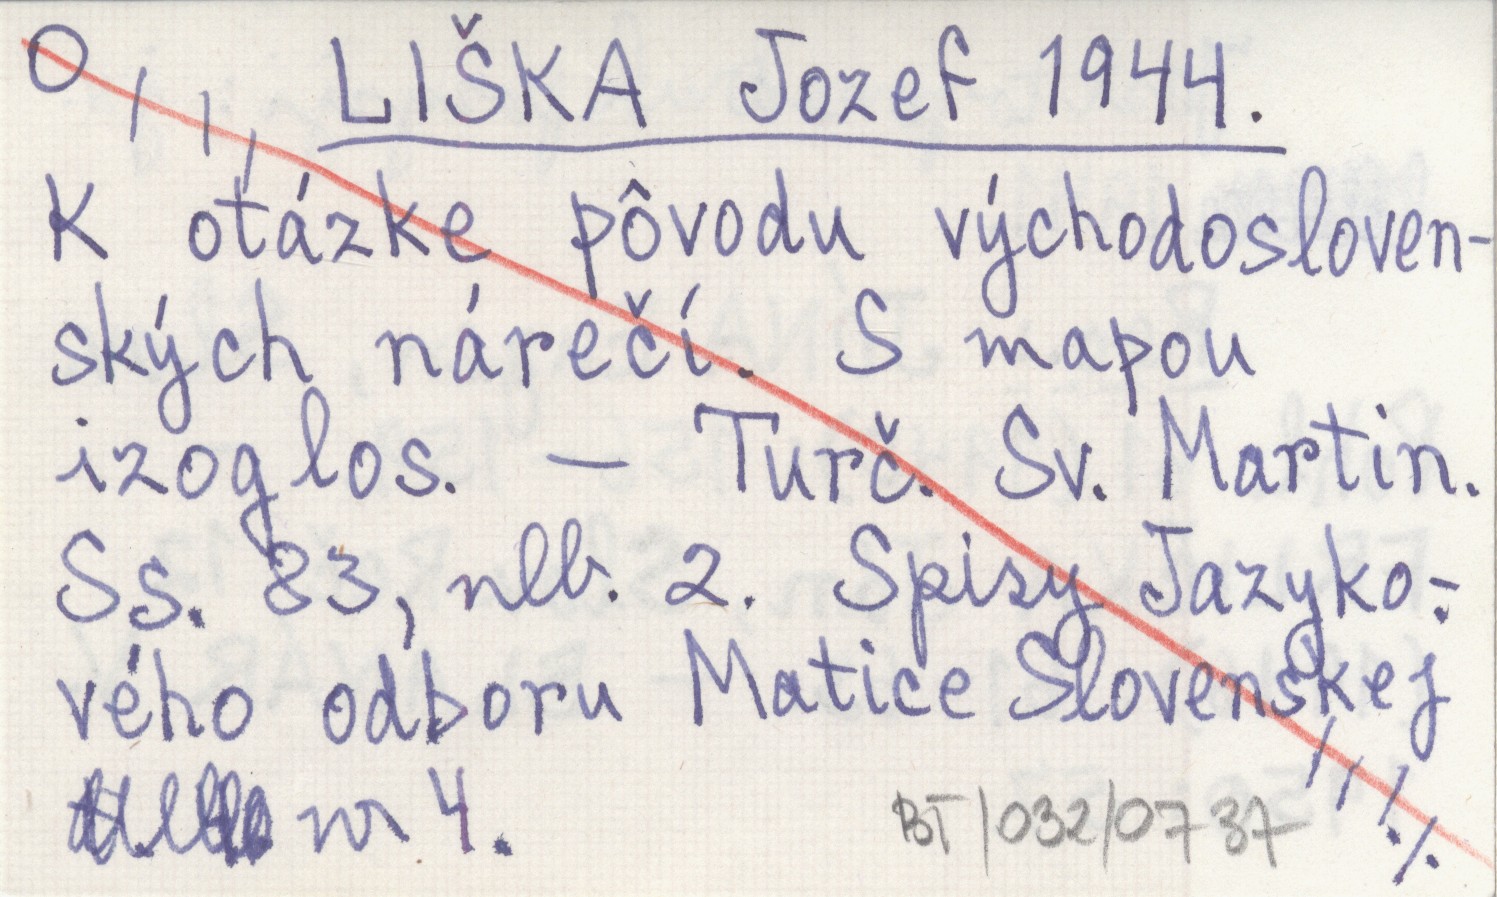 O LIŠKA Jozef 1944.
K otázke pôvodu východosloven-
ských nárečí. S mapou
izoglos. — Turč. Sv. Martin.
Ss. 83, nlb. 2. Spisy Jazyko-
vého odboru Matice Slovenskej
nr 4.
BT/032/0737